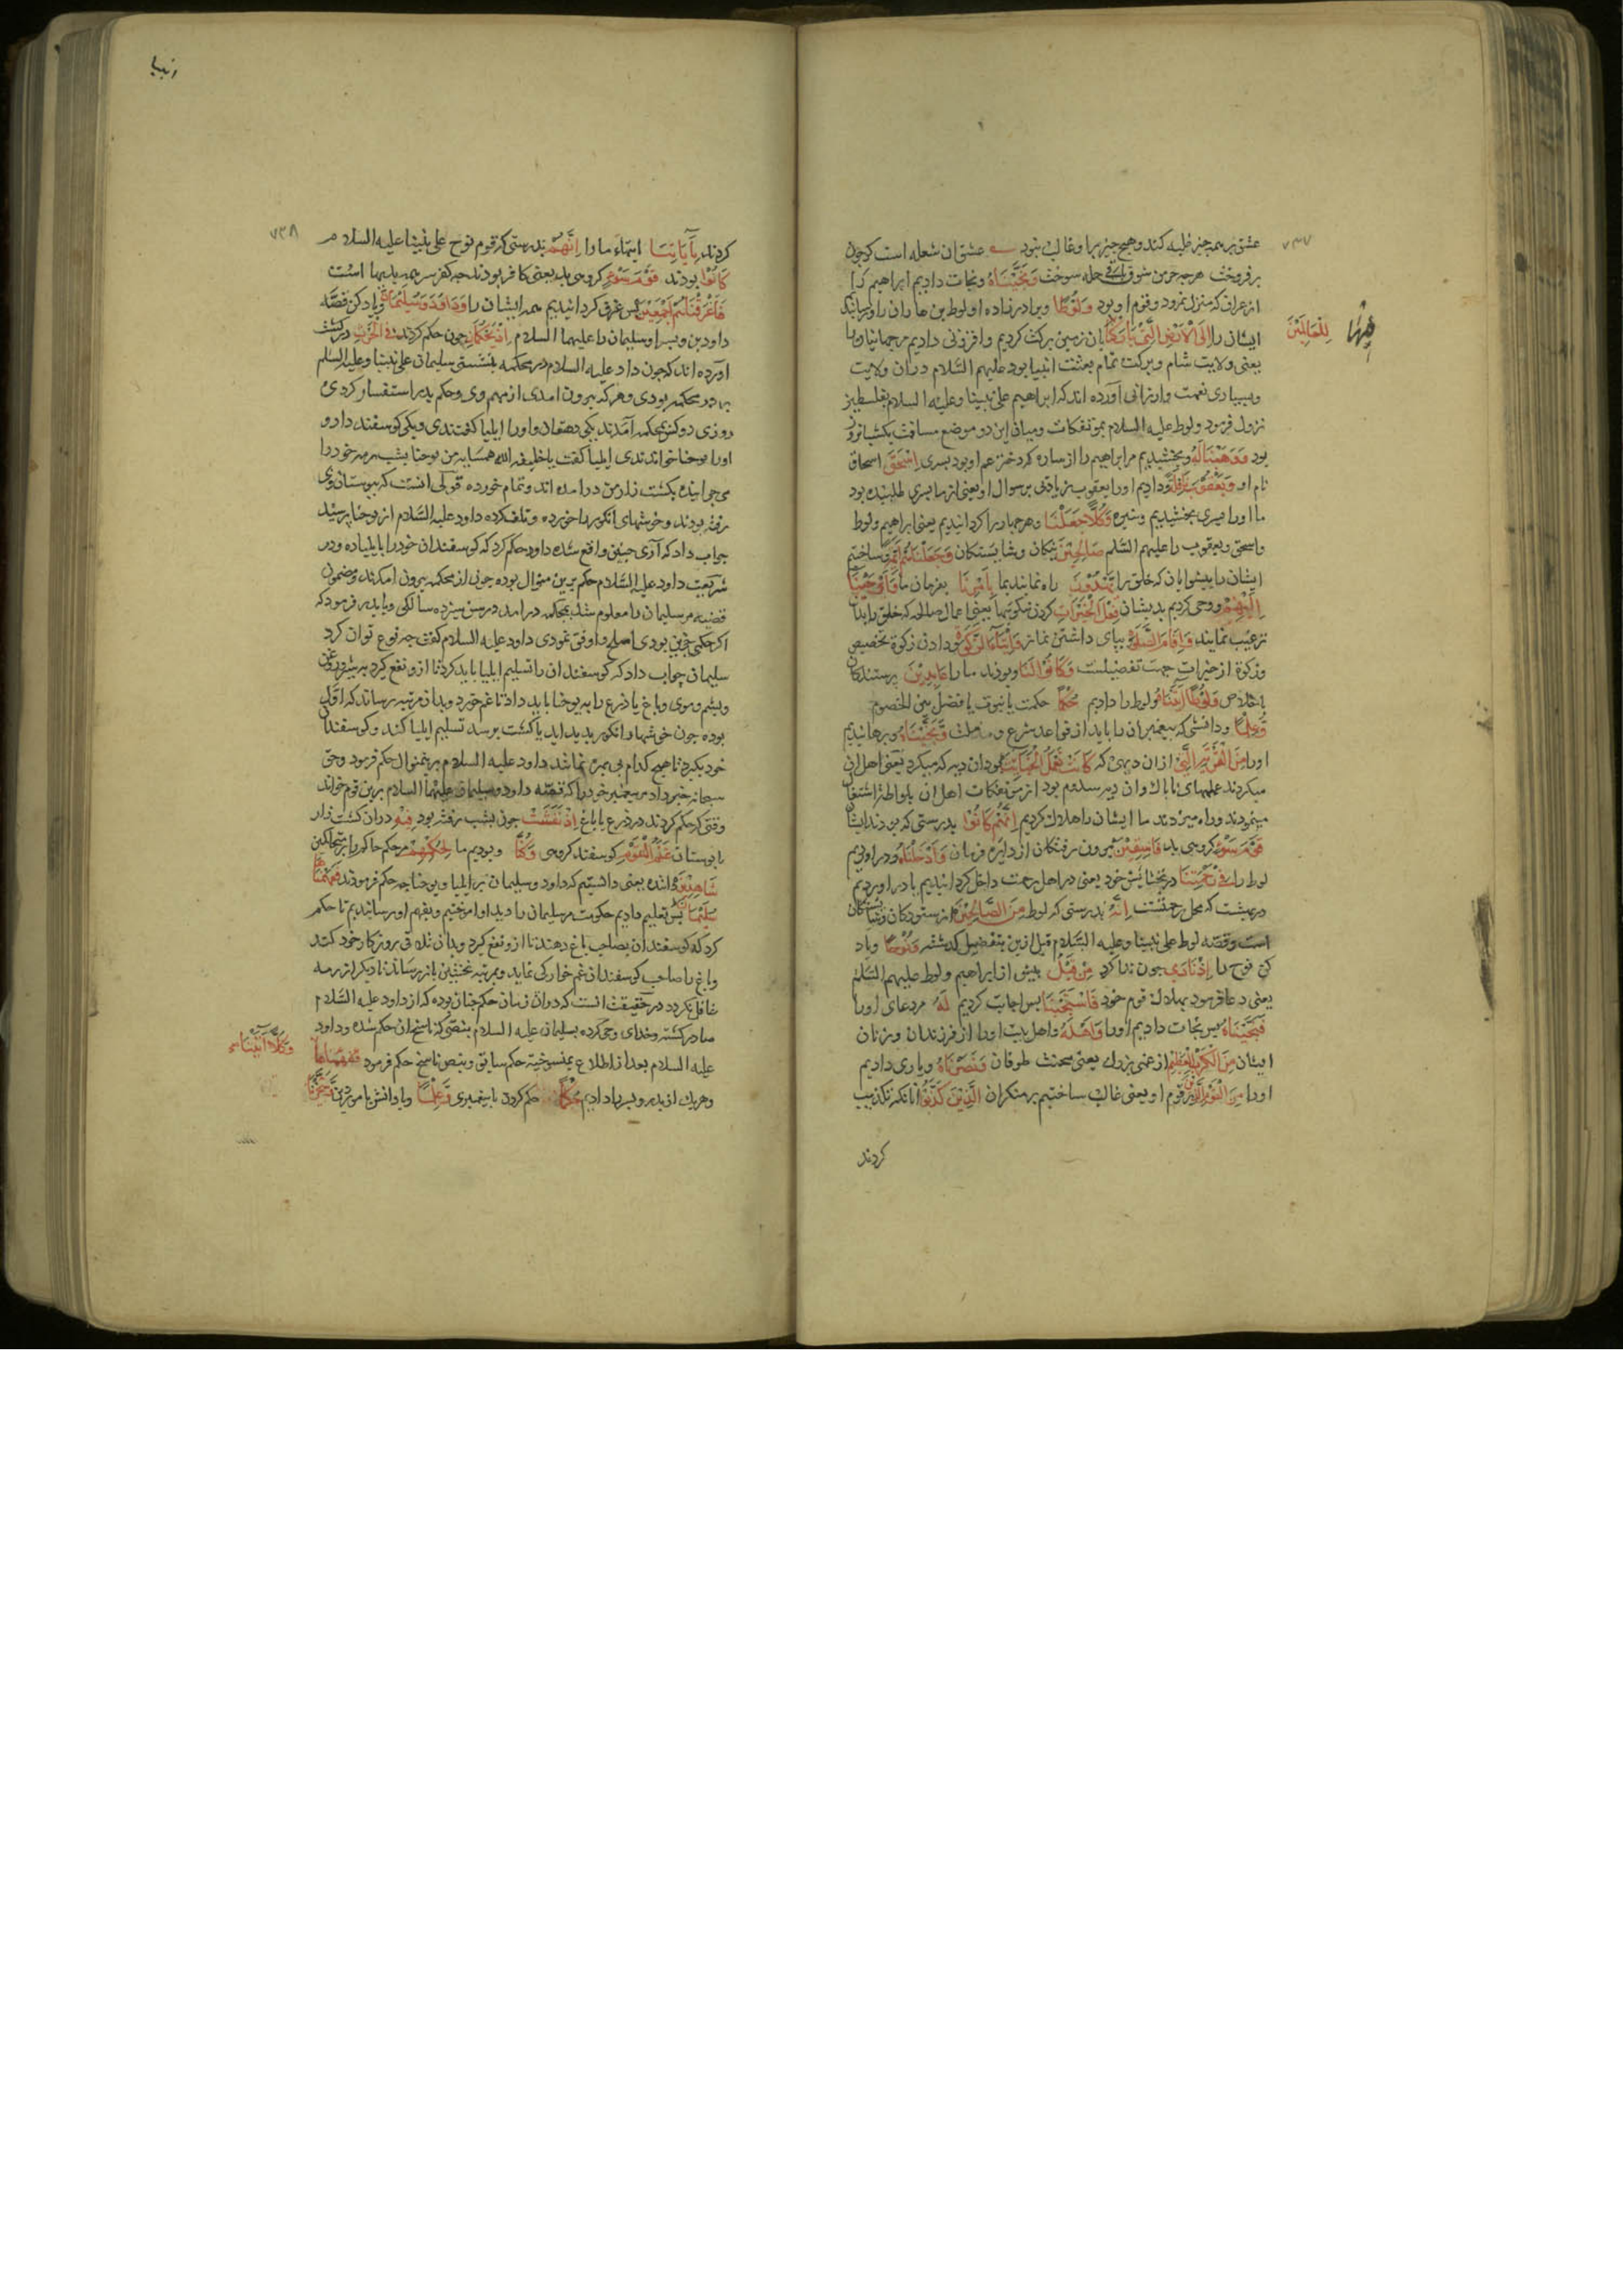 ۷۳۷
عشق بر همه چیز غلبه کند و هیچ چیز برا و غالب نبود عشق ان شعله است کو چون
بر فروخت هر چه جز معشوق باقی جمله سوخت وَنَجَّيْنَاهُ و نجات دادیم ابراهیم را
از عراق که منزل نمرود و قوم او بود وَلُوطًا و برادرزاده او لوط بن هاران را و رسانیدیم
ایشان را اِلَى الْاَرْضِ الَّتِي بَارَكْنَا بان زمین که برکت کردیم و افزونی دادیم
فِيهَا لِلْعَالَمِيْنَ
یعنی ولایت شام و برکت تمام بعثت انبیا بود علیهم السَّلام دران ولایت
و بسیاری نعمت و ارزانی آورده اند که ابراهیم علی نبینا و علیه السلام بفلسطین
نزول فرمود و لوط علیه السلام بموتفکات و میان این دو موضع مسافت یکشبانروز
بود وَوَهَبْنَا لَهُ و بخشیدیم مر ابراهیم را از ساره که دختر عم او بود پسری اِسْحَقَ اسحاق
نام او وَيَعْقُوبَ نَافِلَةً و دادیم او را یعقوب زیادتی بر سوال او یعنی از ما پسری طلبیده بود
ما او را پسری بخشیدیم و نبیره وَكُلًّا جَعَلْنَا و هر چهار را کردانیدیم یعنی ابراهیم و لوط
و اسحق و یعقوب را علیهم السَّلم صَالِحِيْنَ نیکان و شایستکان وَجَعَلْنَاهُمْ اَئِمَّةً و ساختیم
ایشان را پیشوایان که خلق را يَهْدُوْنَ راه نمایند بِاَمْرِنَا بفرمان ما وَاَوْحَيْنَا
اِلَيْهِمْ و وحی کردیم بدیشان فِعْلَ الْخَيْرَاتِ کردن نیکوییها یعنی اعمال صالحه که خلق را بدان
ترغیب نمایند وَاِقَامَ الصَّلٰوةِ بپای داشتن نماز وَاِيْتَاءَ الزَّكٰوةِ و دادن زکوة تخصیص
و زکوة از خیرات جهت تفضیلست وَكَانُوْا لَنَا و بودند ما را عَابِدِيْنَ پرستندکان
باخلاص وَلُوطًا اٰتَيْنَاهُ و لوط را دادیم حُكْمًا حکمت یا نبوت یا فصل بین الخصوم
وَعِلْمًا و دانشی که پیغمبران را باید از قواعد شرع و ملت وَنَجَّيْنَاهُ و برهانیدیم
او را مِنَ الْقَرْيَةِ الَّتِي ازان دیهی که كَانَتْ تَعْمَلُ الْخَبَائِثَ بود ان دیه که میکرد یعنی اهل ان
میکردند عملهای ناپاک و ان دیه سدوم بود از موتفکات اهل ان بلواطة اشتغال
مینمودند و راه میزدند ما ایشان را هلاک کردیم اِنَّهُمْ كَانُوْا بدرستی که بودند ایشان
قَوْمَ سَوْءٍ کروهی بد فَاسِقِيْنَ بیرون رفتکان از دایره فرمان وَاَدْخَلْنَاهُ و دراوردیم
لوط را فِي رَحْمَتِنَا در بخشایش خود یعنی در اهل رحمت داخل کردانیدیم یا دراوردیم
در بهشت که محل رحمتست اِنَّهُ بدرستی که لوط مِنَ الصَّالِحِيْنَ از ستودکان و شایستکان
است و قصه لوط علی نبینا و علیه السَّلام قبل ازین بتفصیل کذشته وَنُوْحًا و یاد
کن نوح را اِذْ نَادٰى چون ندا کرد مِنْ قَبْلُ پیش از ابراهیم و لوط علیهم السَّلم
یعنی دعا فرمود بهلاک قوم خود فَاسْتَجَبْنَا پس اجابت کردیم لَهُ مر دعای او را
فَنَجَّيْنَاهُ پس نجات دادیم او را وَاَهْلَهُ و اهل بیت او را از فرزندان و زنان
ایشان مِنَ الْكَرْبِ الْعَظِيْمِ از غمی بزرک یعنی محنت طوفان وَنَصَرْنَاهُ و یاری دادیم
او را مِنَ الْقَوْمِ الَّذِيْنَ از قوم او یعنی غالب ساختیم بر منکران الَّذِيْنَ كَذَّبُوْا انانکه تکذیب
کردند
انبیا
۷۳۸
کردند بِاٰيَاتِنَا ایتهاء ما را اِنَّهُمْ بدرستی که قوم نوح علی نبینا علیه السلام
كَانُوْا بودند قَوْمَ سَوْءٍ کروهی بد یعنی کافر بودند چه کفر سر همه بدیها است
فَاَغْرَقْنَاهُمْ اَجْمَعِيْنَ پس غرق کردانیدیم همه ایشان را وَدَاوُدَ وَسُلَيْمَانَ و یاد کن قصّه
داود بن و پسر او سلیمان را علیهما السلام اِذْ يَحْكُمَانِ چون حکم کردند فِي الْحَرْثِ در کشت
اورده اند که چون داد علیه السلام در محکمه بنشستی سلیمان علی نبینا و علیه السلم
بر در محکمه بودی و هر که بیرون امدی از مهم وی و حکم پدر استفسار کردی
روزی دو کس بمحکمه آمدند یکی دهقان و او را ایلیا کفتندی و یکی کوسفنددار و
او را یوحنا خواندندی ایلیا کفت یا خلیفه الله همسایه من یوحنا بشب رمه خود را
می چرانیده بکشت زار من درامده اند و تمام خورده قولی انست که ببوستان وی
رفته بودند و خوشهای انکور را خورده و تلف کرده داود علیه السَّلام از یوحنا پرسید
جواب داد که آری چنین واقع شده داود حکم کرد که کوسفندان خود را بایلیا ده و در
شریعت داود علیه السَّلام حکم برین منوال بوده چون از محکمه بیرون امدند و مضمون
قضیه مر سلیمان را معلوم شد بمحکمه درامد در سن سیزده سالکی و با پدر فرمود که
اکر حکمی چنین بودی اصلح و اوفق نمودی داود علیه السلام کفت چه نوع توان کرد
سلیمان جواب داد که کوسفندان را تسلیم ایلیا باید کرد تا ازو نفع کیرد بشیر و روغن
و پشم و موی و باغ یا زرع را به یوحنا باید داد تا غم خورد و بدان مرتبه رساند که اول
بوده چون خوشها و انکور پدید اید یا کشت برسد تسلیم ایلیا کند و کوسفندان
خود بکیرد تا هیچ کدام بی بهره نمانند داود علیه السلام برینمنوال حکم فرمود و حق
سبحانه خبر داد مر پیغمبر خود را که قصّه داود و سلیمان علیهما السلام برین قوم خواند
وقتی که حکم کردند در زرع یا باغ اِذْ نَفَشَتْ چون بشب رفته بود فِيْهِ دران کشت زار
یا بوستان غَنَمُ الْقَوْمِ کوسفند کروهی وَكُنَّا و بودیم ما لِحُكْمِهِمْ مر حکم حاکم را و متحاکمین
شَاهِدِيْنَ داننده یعنی دانستیم که داود و سلیمان بر ایلیا و یوحنا چه حکم فرمودند فَفَهَّمْنَاهَا
سُلَيْمَانَ پس تعلیم دادیم حکومت مر سلیمان را و بفهم او رسانیدیم تا حکم
کرد که کوسفندان بصاحب باغ دهند تا ازو نفع کیرد و بدان تلافی روزکار خود کند
و باغ را صاحب کوسفندان غم خوارکی نماید و بمرتبه نخستین باز رساند تا دیکر از رمه
غافل نکردد در حقیقت انست که دران زمان حکم چنان بوده که از داود علیه السَّلام
صادر کشته و خدای وحی کرده بسلیمان علیه السلام بنصّی که ناسخ ان حکم شده و داود
علیه السلام بعد از اطلاع بمنسوخیة حکم سابق و بنص ناسخ حکم فرمود فَفَهَّمْنَاهَا
وَكُلًّا اٰتَيْنَا
و هر یک از پدر و پسر را دادیم حُكْمًا حکم کردن یا پیغمبری وَعِلْمًا و یا دانش بامور دین وَسَخَّرْنَا